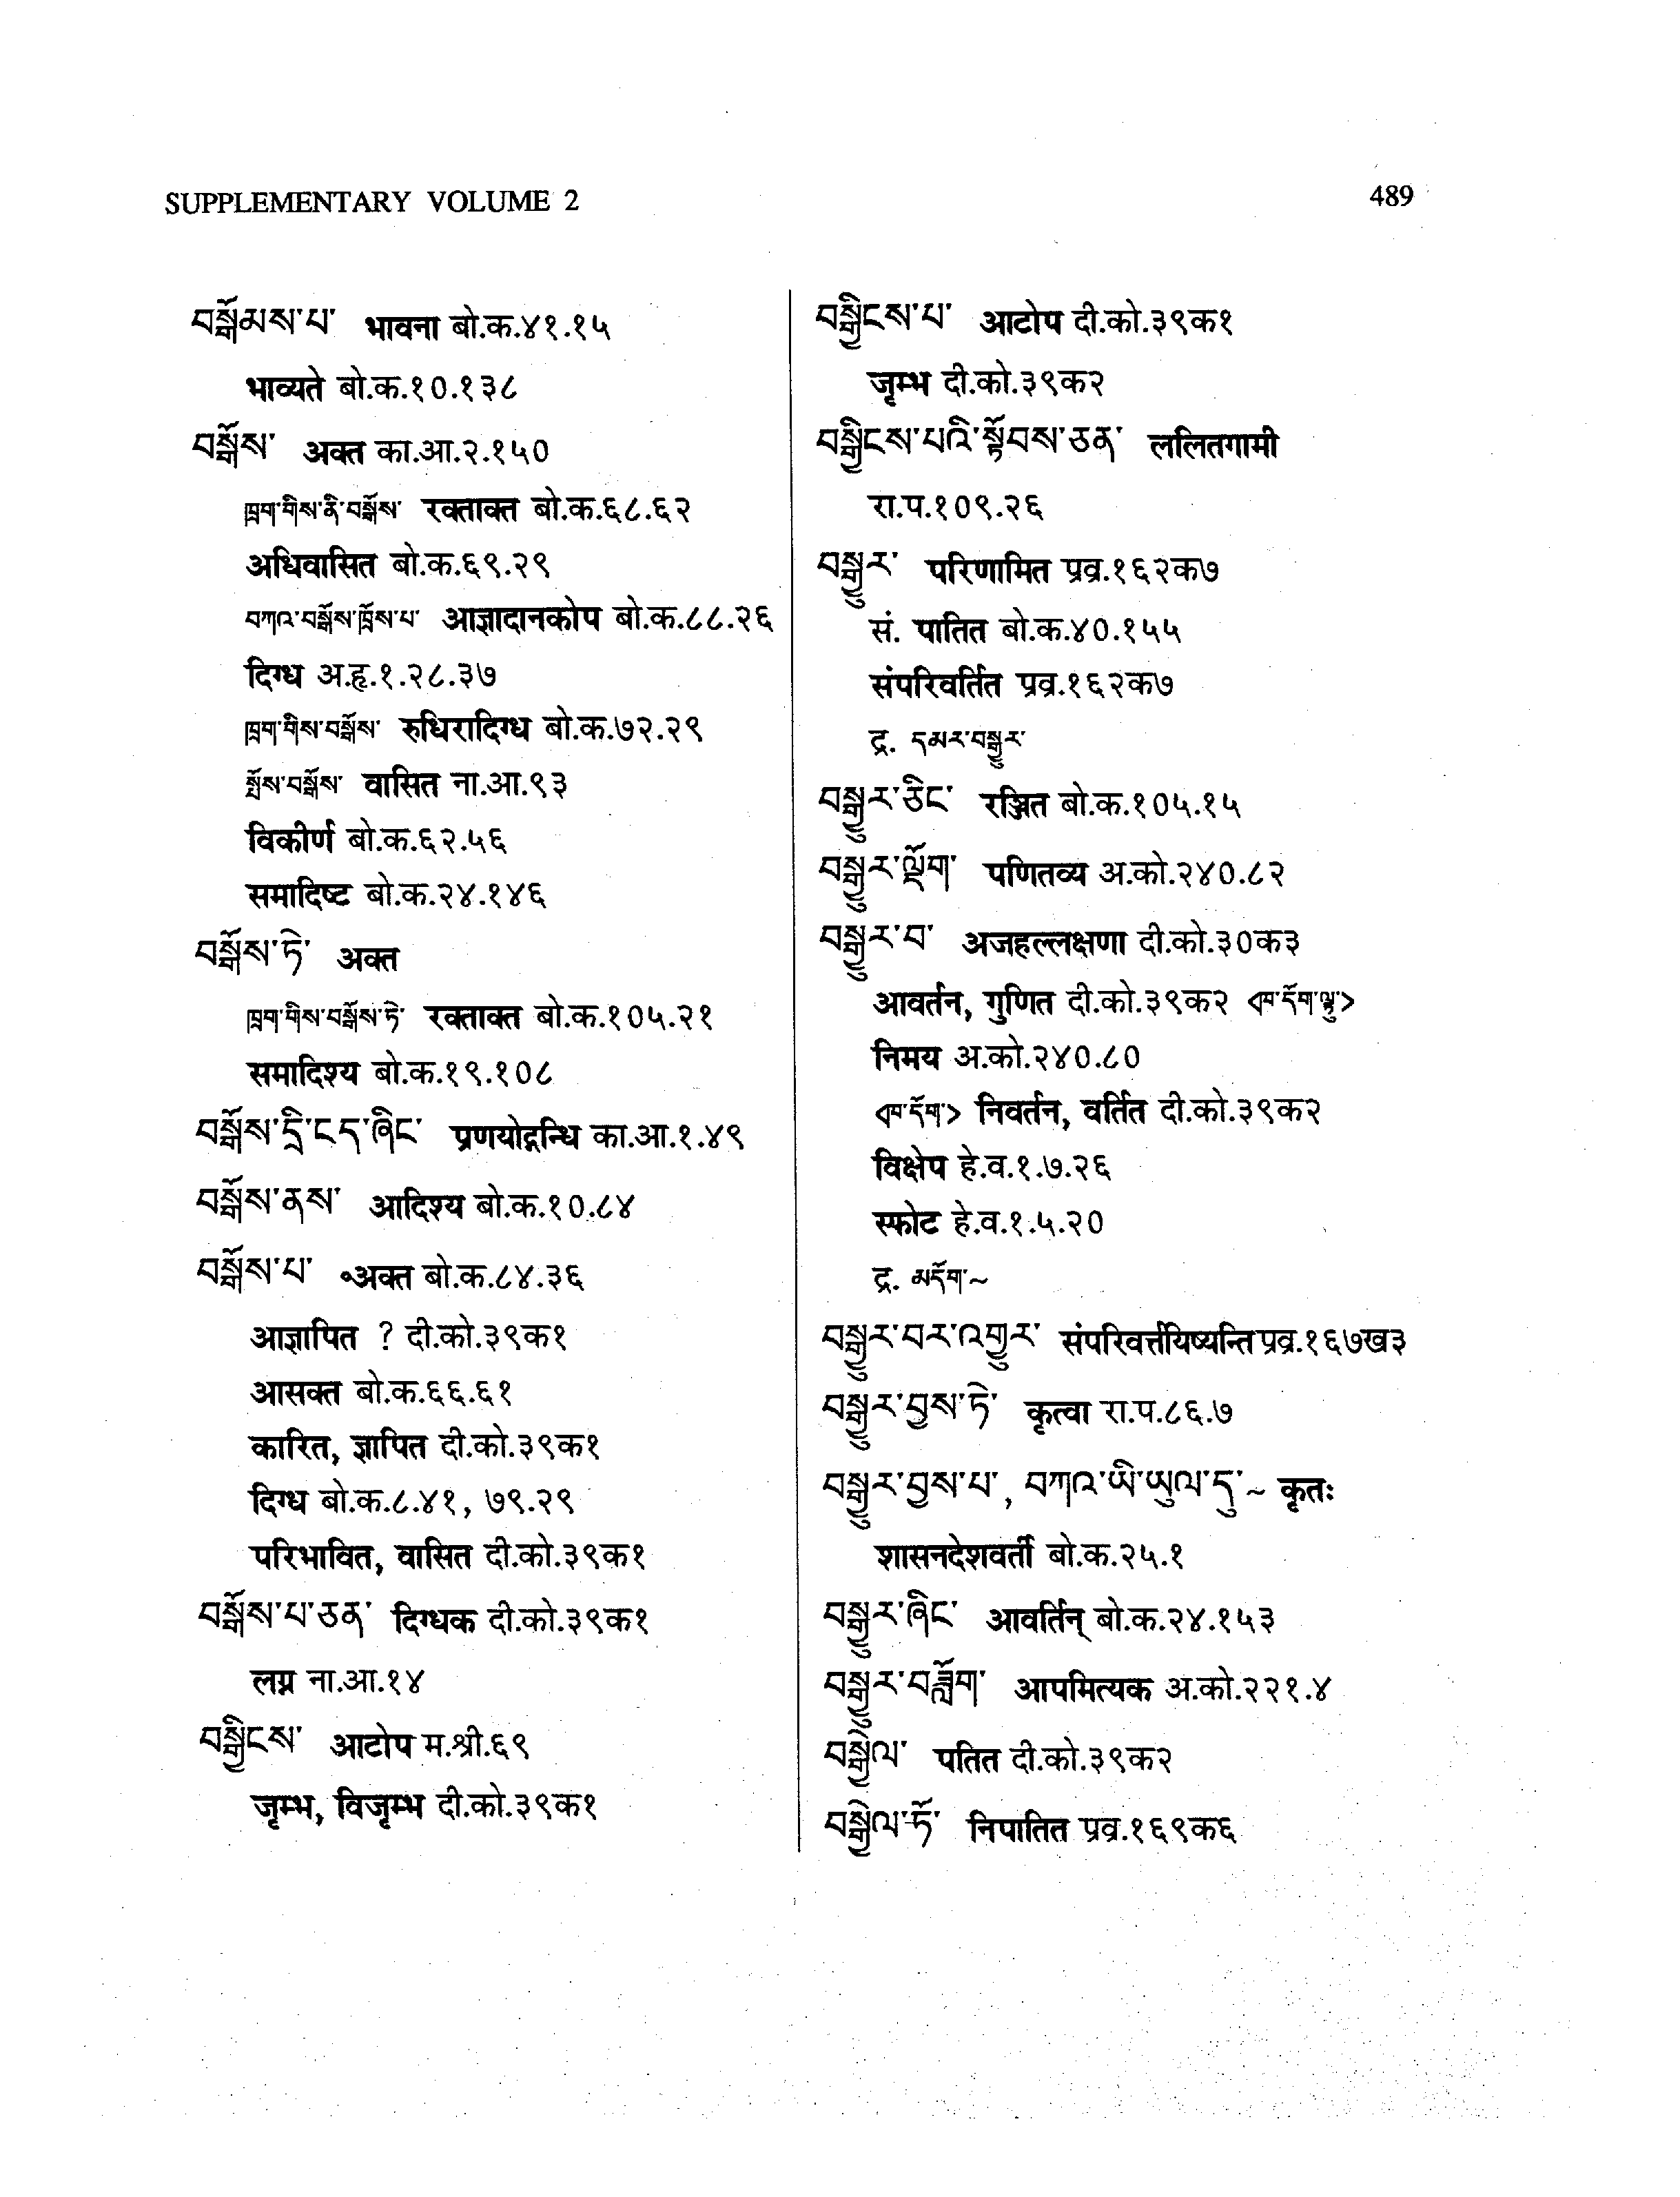 SUPPLEMENTARY VOLUME 2
489
བསྒོམས་པ་ भावना बो.क.४१.१५
भाव्यते बो.क.१०.१३८
བསྒོས་ अक्त का.आ.२.१५०
ཁྲག་གིས་ནི་བསྒོས་ रक्ताक्त बो.क.६८.६२
अधिवासित बो.क.६९.२९
བཀའ་བསྒོས་ཁྲོས་པ་ आज्ञादानकोप बो.क.८८.२६
दिग्ध अ.हृ.१.२८.३७
ཁྲག་གིས་བསྒོས་ रुधिरादिग्ध बो.क.७२.२९
སྤོས་བསྒོས་ वासित ना.आ.९३
विकीर्ण बो.क.६२.५६
समादिष्ट बो.क.२४.१४६
བསྒོས་ཏེ་ अक्त
ཁྲག་གིས་བསྒོས་ཏེ་ रक्ताक्त बो.क.१०५.२१
समादिश्य बो.क.१९.१०८
བསྒོས་དྲི་ངད་ཞིང་ प्रणयोद्गन्धि का.आ.१.४९
བསྒོས་ནས་ आदिश्य बो.क.१०.८४
བསྒོས་པ་ ॰अक्त बो.क.८४.३६
आज्ञापित ? दी.को.३९क१
आसक्त बो.क.६६.६१
कारित, ज्ञापित दी.को.३९क१
दिग्ध बो.क.८.४१, ७९.२९
परिभावित, वासित दी.को.३९क१
བསྒོས་པ་ཅན་ दिग्धक दी.को.३९क१
लग्न ना.आ.१४
བསྒྱིངས་ आटोप म.श्री.६९
जृम्भ, विजृम्भ दी.को.३९क१
བསྒྱིངས་པ་ आटोप दी.को.३९क१
जृम्भ दी.को.३९क२
བསྒྱིངས་པའི་སྟོབས་ཅན་ ललितगामी
रा.प.१०९.२६
བསྒྱུར་ परिणामित प्रव्र.१६२क७
सं. पातित बो.क.४०.१५५
संपरिवर्तित प्रव्र.१६२क७
द्र. དམར་བསྒྱུར་
བསྒྱུར་ཅིང་ रञ्जित बो.क.१०५.१५
བསྒྱུར་ལྡོག་ पणितव्य अ.को.२४०.८२
བསྒྱུར་བ་ अजहल्लक्षणा दी.को.३०क३
आवर्तन, गुणित दी.को.३९क२ <ཁ་དོག་ལྟ་>
निमय अ.को.२४०.८०
<ཁ་དོག་> निवर्तन, वर्तित दी.को.३९क२
विक्षेप हे.व.१.७.२६
स्फोट हे.व.१.५.२०
द्र. མདོག་~
བསྒྱུར་བར་འགྱུར་ संपरिवर्त्तयिष्यन्ति प्रव्र.१६७ख३
བསྒྱུར་བྱས་ཏེ་ कृत्वा रा.प.८६.७
བསྒྱུར་བྱས་པ་, བཀའ་ཡི་ཡུལ་དུ་~ कृतः
शासनदेशवर्ती बो.क.२५.१
བསྒྱུར་ཞིང་ आवर्तिन् बो.क.२४.१५३
བསྒྱུར་བཟློག་ आपमित्यक अ.को.२२१.४
བསྒྱེལ་ पतित दी.को.३९क२
བསྒྱེལ་ཏོ་ निपातित प्रव्र.१६९क६